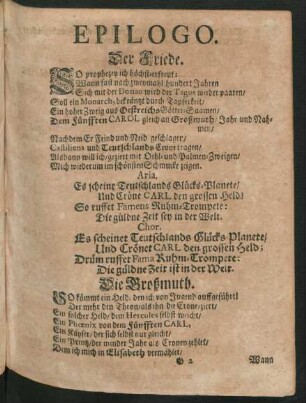 EPILOGO.
Der Friede.
SO prophezey ich höchsterfreut:
Wann fast noch zweymahl hundert Jahren
Sich mit der Donau wird der Tagus wieder paaren/
Soll ein Monarch, bekräntzt durch Tapferkeit,
Ein hoher Zweig aus Oestreichs Götter-Saamen,
Dem Fünfften CAROL gleich an Großmuth/ Jahr und Nah-
men/
Nachdem Er Feind und Neid geschlagen/
Castiliens und Teutschlands Cron tragen/
Alsdann will ich geziert mit Oehl- und Palmen-Zweigen/
Mich wiederum im schönsten Schmucke zeigen.
Aria.
Es scheint Teutschlands Glücks-Planete/
Und Cröne CARL den grossen Held/
So ruffet Famens Ruhm-Trompete:
Die güldne Zeit sey in der Welt.
Chor.
Es scheinet Teutschlands Glücks-Planete/
Und Crönet CARL den grossen Held;
Drüm ruffet Fama Ruhm-Trompete:
Die güldne Zeit ist in der Welt.
Die Großmuth.
SO kömmt ein Held, den ich von Jugend auffgeführt/
Der mehr den Thron/ als ihn die Cron ziert/
Ein solcher Held/ dem Hercules selbst weicht/
Ein Phœnix von dem Fünfften CARL,
Ein Käyser/ der sich selbst nur gleicht/
Ein Printz/ der minder Jahr als Cronen zehlet/
Dem ich mich in Elisabeth vermählet/
G 2 Wann